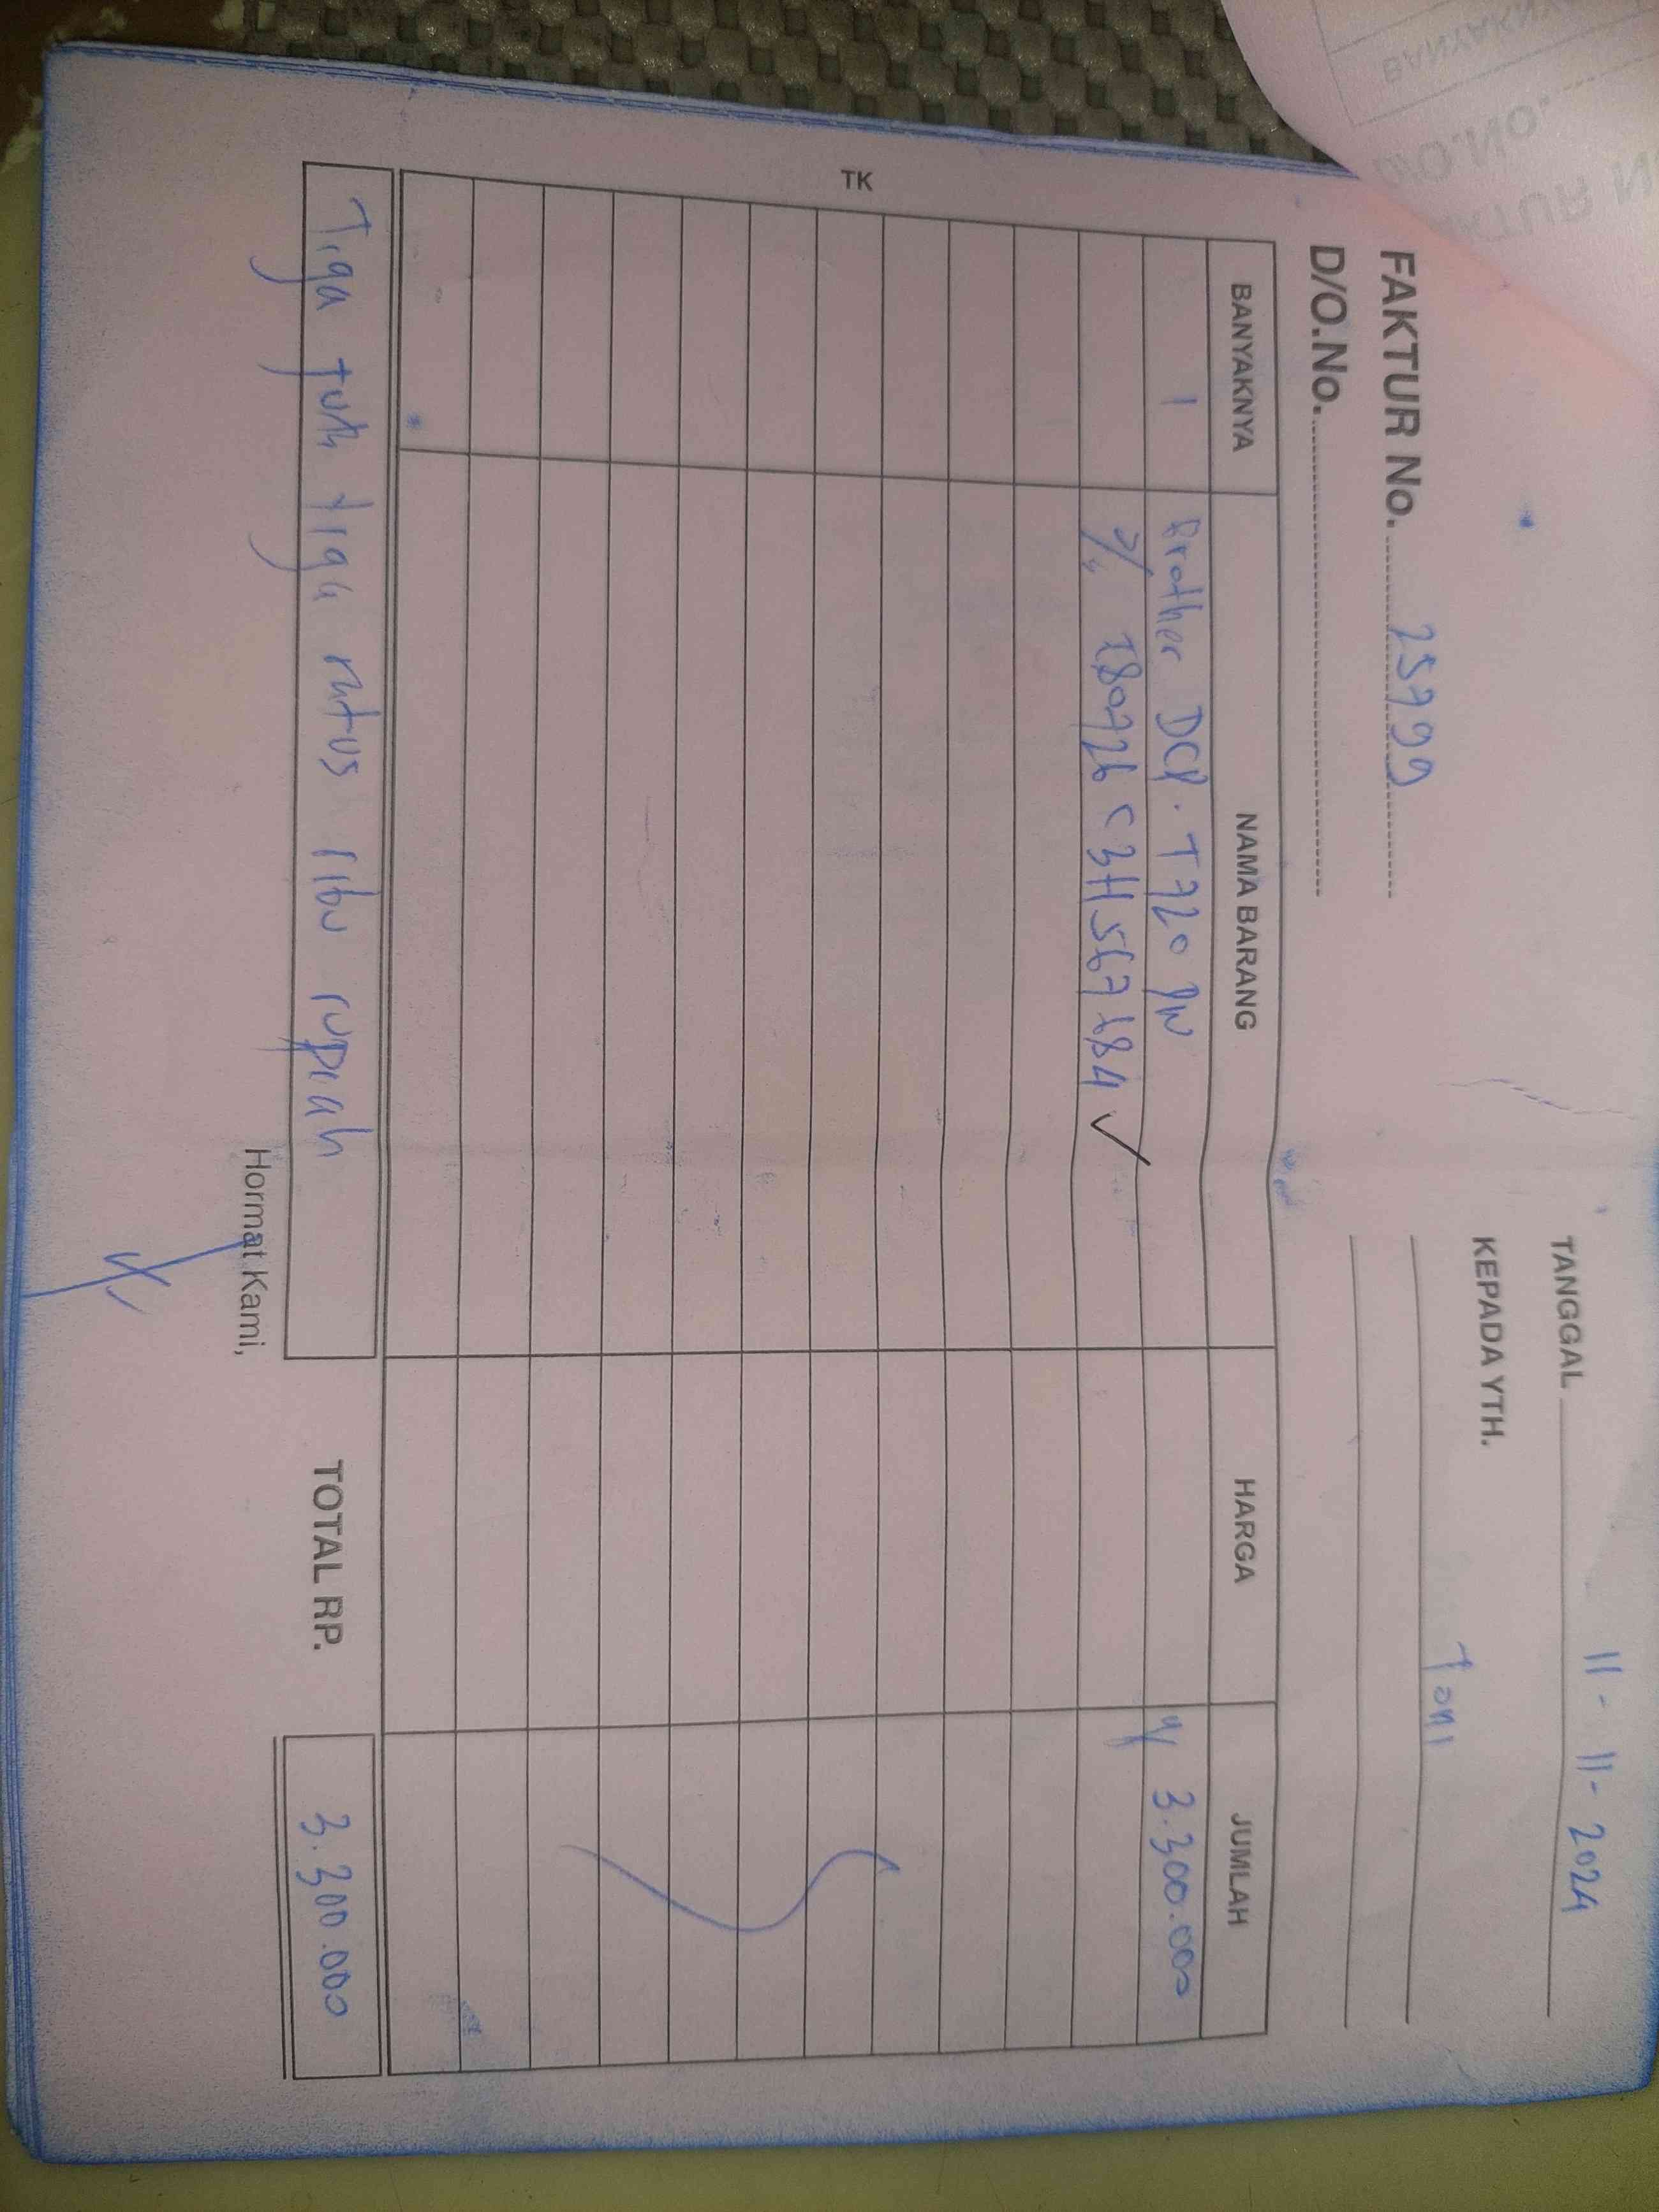 TANGGAL 11 - 11 - 2024
KEPADA YTH.
Toni
FAKTUR No. 25799
D/O.No.
BANYAKNYA NAMA BARANG HARGA JUMLAH
1 Brother DCP. T720 DW 3.300.000
C3H567684
TK
Tiga juta tiga ratus ribu rupiah TOTAL RP. 3.300.000
Hormat Kami,